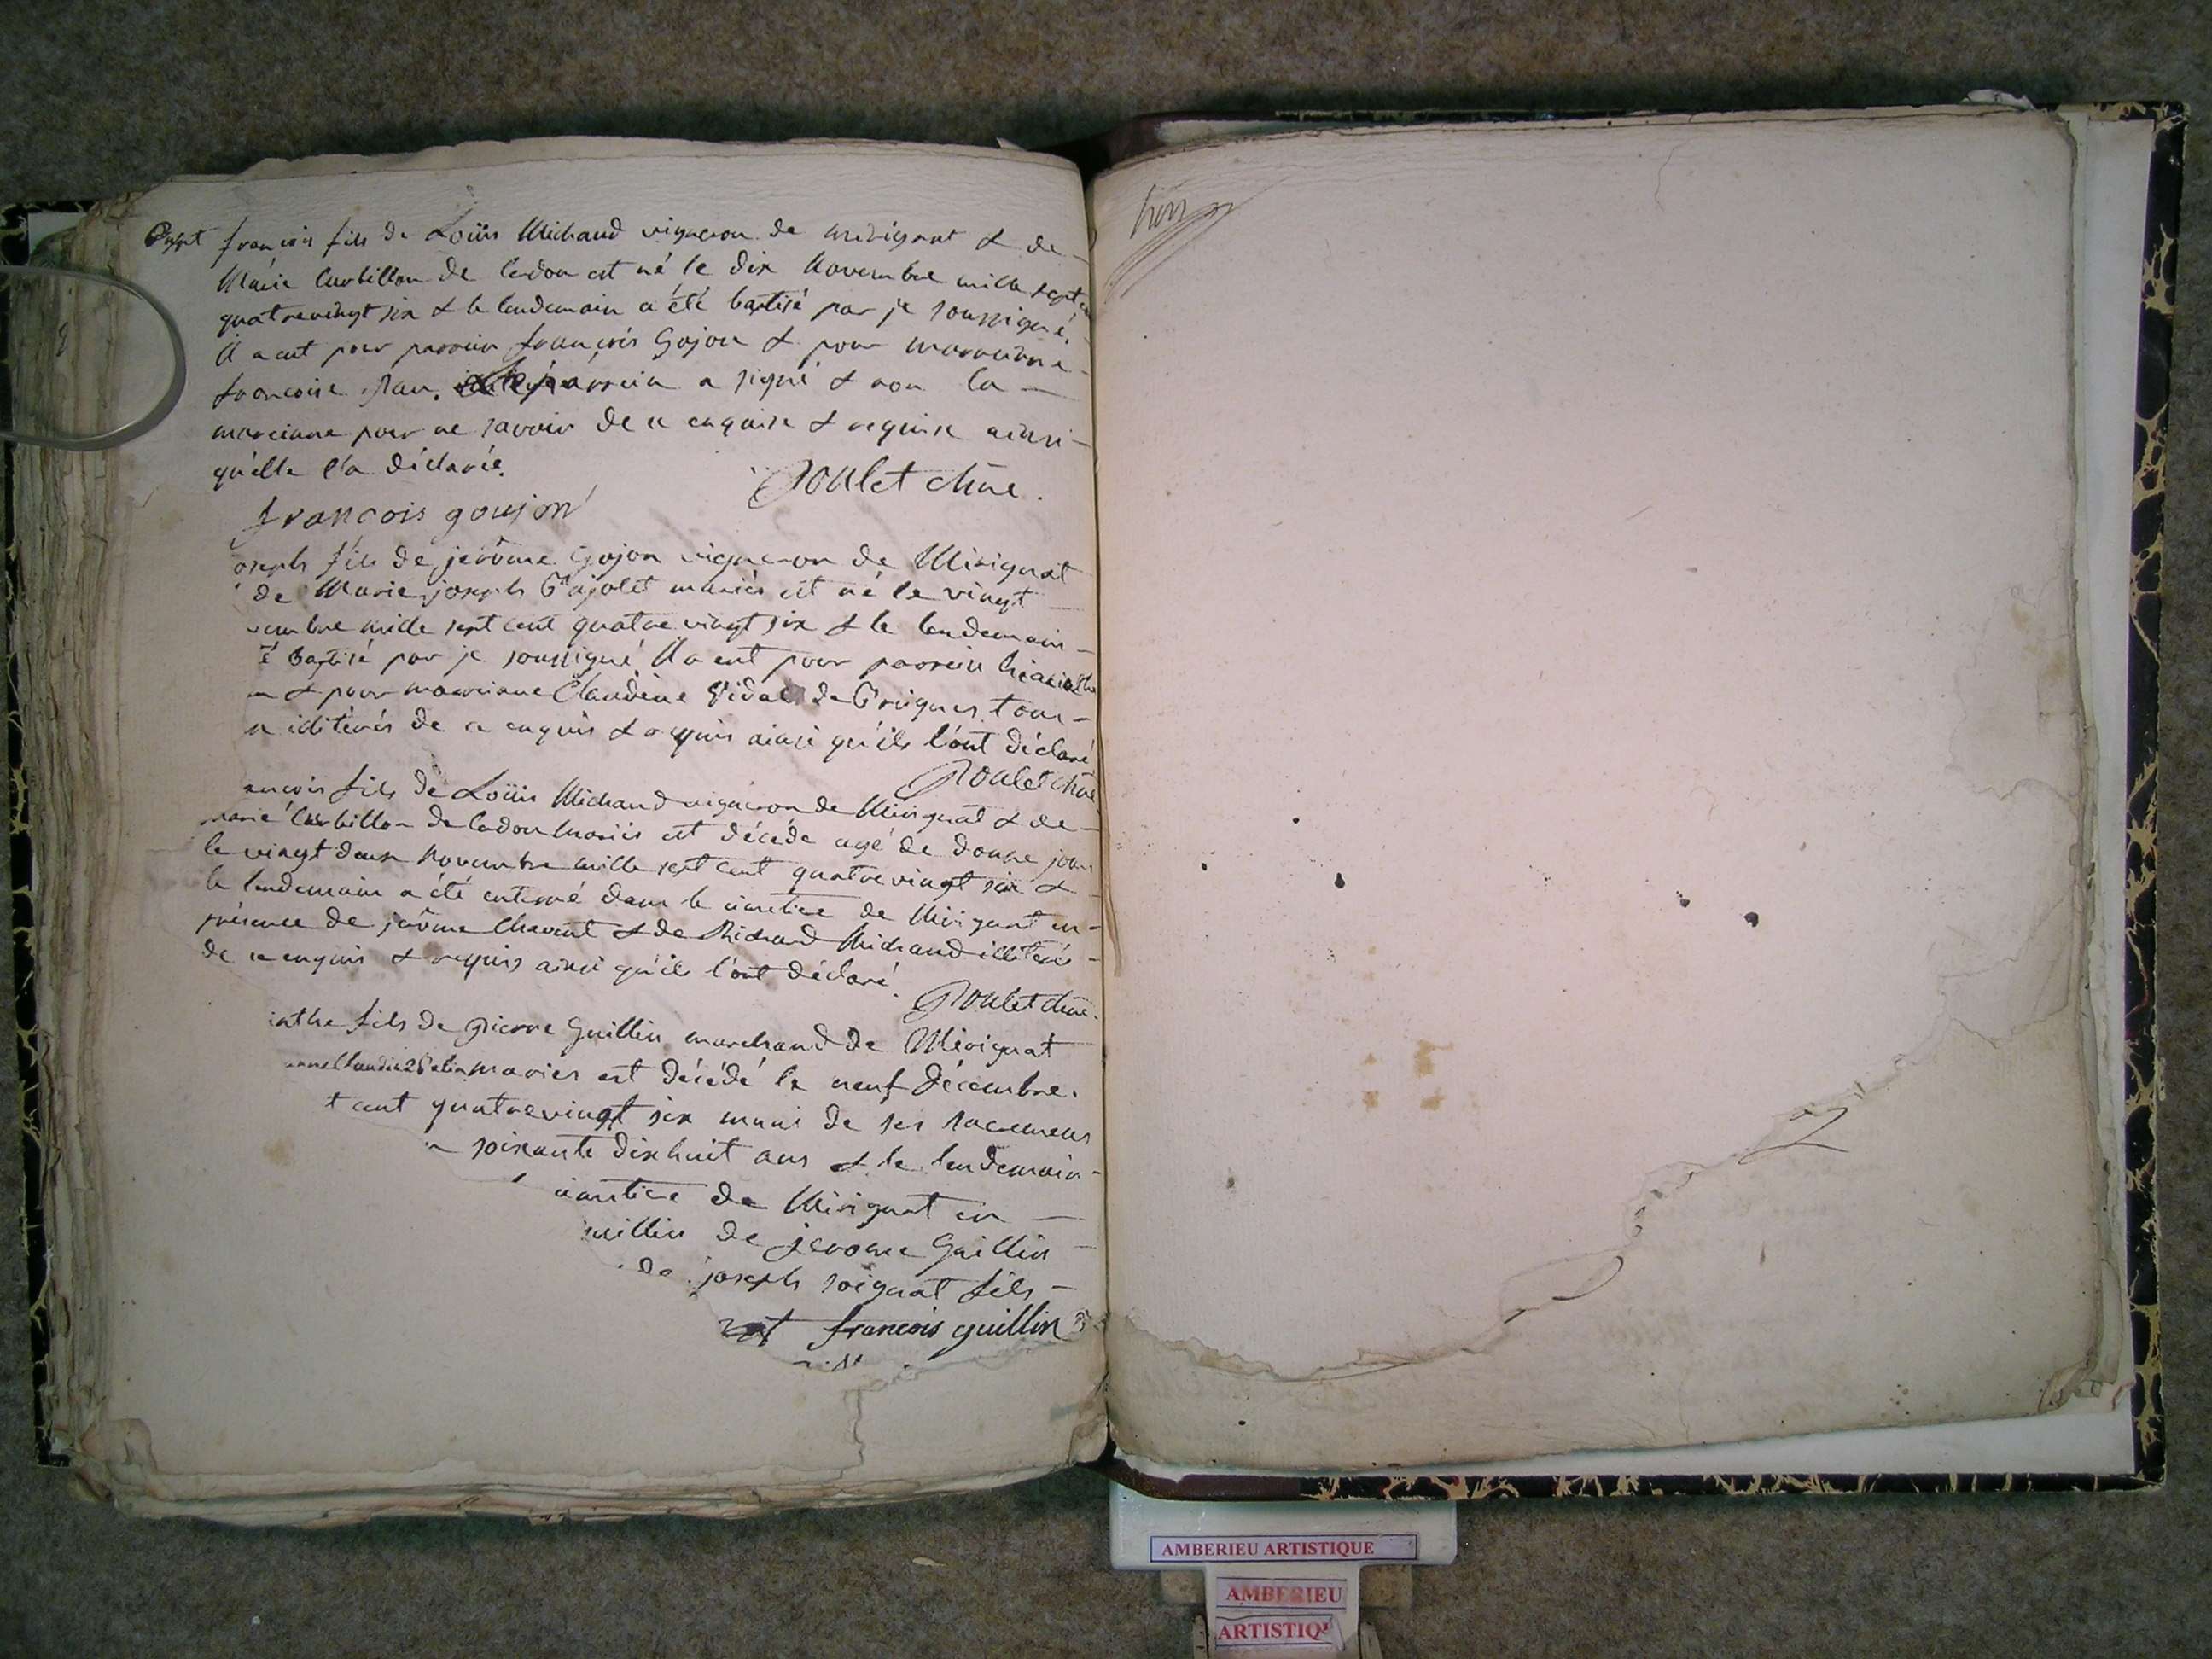 françois fils de Loüis Michaud vigneron de mérignat & de
Marie Curbillon de cerdon est né le dix Novembre mille sept
quatrevingt six & le lendemain a été baptisé par je soussigné.
Il a eut pour parrein françois Gojon & pour marreinne
francoise parrein a signé & non la
mareinne pour ne savoir de ce enquise & requise ainsi
qu'elle l'a déclarée.
Poulet chne.
françois goujon
oseph fils de jerôme Gojon vigneron de Mérignat
de Marie joseph mariés est né le vingt
embre mille sept cent quatre vingt six & le lendemain
té baptisé par je soussigné. Il a eut pour parrein hiacinthe
n & pour marreinne Claudine Vidal de tous
illitérés de ce enquis & requis ainsi qu'ils l'ont déclaré
Poulet chne.
ancois fils de Loüis Michaud vigneron de Mérignat & de
marie Curbillon de cerdon mariés est décédé agé de douze jours
le vingt deux Novembre mille sept cent quatrevingt six &
le lendemain a été enterré dans le cimetiere de Mérignat en
présence de jerôme Chavent & de Richard Michaud illiterés
de ce enquis & requis ainsi qu'ils l'ont déclaré.
Poulet chne.
inthe fils de pierre Guillin marchand de Mérignat
mariés est décédé le neuf décembre
t cent quatrevingt six muni de ses sacremens
soixante dix huit ans & le lendemain
cimetiere de Mérignat en
uillin de jerome Guillin
de joseph soignat fils
francois guillin
AMBERIEU ARTISTIQUE
AMBERIEU
ARTISTIQ